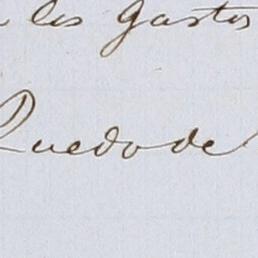 los gastos
Quedo de